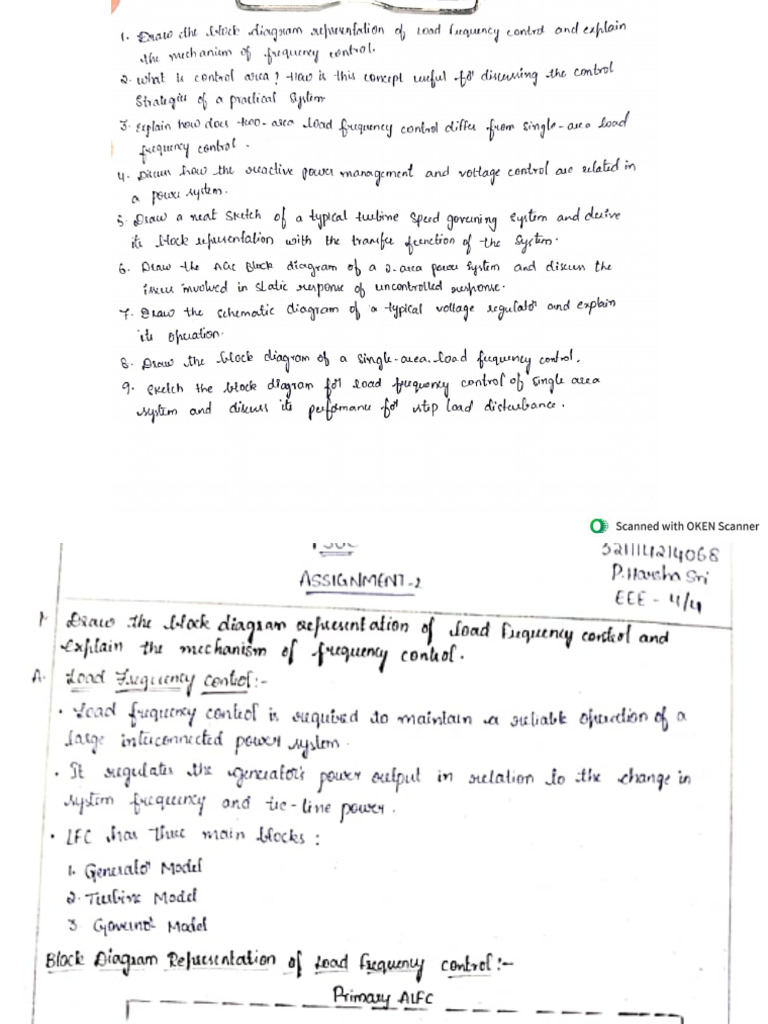 1. Draw the block diagram representation of load frequency control and explain
the mechanism of frequency control.
2. What is control area? How is this concept useful for discussing the control
Strategies of a practical System
3. Explain how does two-area load frequency control differ from single-area load
frequency control.
4. Discuss how the reactive power management and voltage control are related in
a power system.
5. Draw a neat sketch of a typical turbine speed governing system and derive
its block representation with the transfer function of the System.
6. Draw the AGC Block diagram of a 2-area power system and discuss the
issues involved in static response of uncontrolled response.
7. Draw the schematic diagram of a typical voltage regulator and explain
its operation.
8. Draw the block diagram of a single-area load frequency control.
9. Sketch the block diagram for load frequency control of single area
system and discuss its performance for step load disturbance.
Scanned with OKEN Scanner
ASSIGNMENT-2
P. Harsha Sri
EEE - 4/4
1. Draw the block diagram representation of load frequency control and
explain the mechanism of frequency control.
A. Load Frequency Control:-
• Load frequency control is required to maintain a reliable operation of a
large interconnected power system.
• It regulates the generator's power output in relation to the change in
system frequency and tie-line power.
• LFC has three main blocks:
1. Generator Model
2. Turbine Model
3 Governor Model
Block Diagram Representation of Load frequency control:-
Primary ALFC